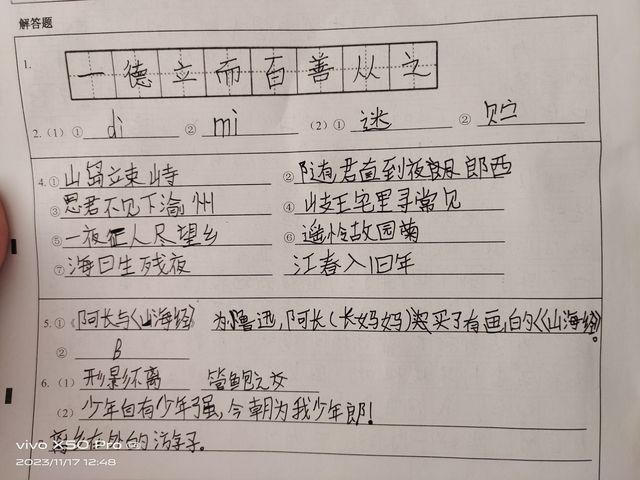 解答题
1. 一德立而百善从之
2. (1) ① di ② mi (2) ① 迷 ② 贮
4. ① 山岛竦峙 ② 随君直到夜郎西
③ 思君不见下渝州 ④ 岐王宅里寻常见
⑤ 一夜征人尽望乡 ⑥ 遥怜故园菊
⑦ 海日生残夜 江春入旧年
5. ①《阿长与《山海经》 为鲁迅,阿长(长妈妈)买了有画的《山海经》。
② B
6. (1) 形影不离 管鲍之交
(2) 少年自有少年强,今朝为我少年郎!
离乡在外的游子。
vivo X50 Pro
2023/11/17 12:48